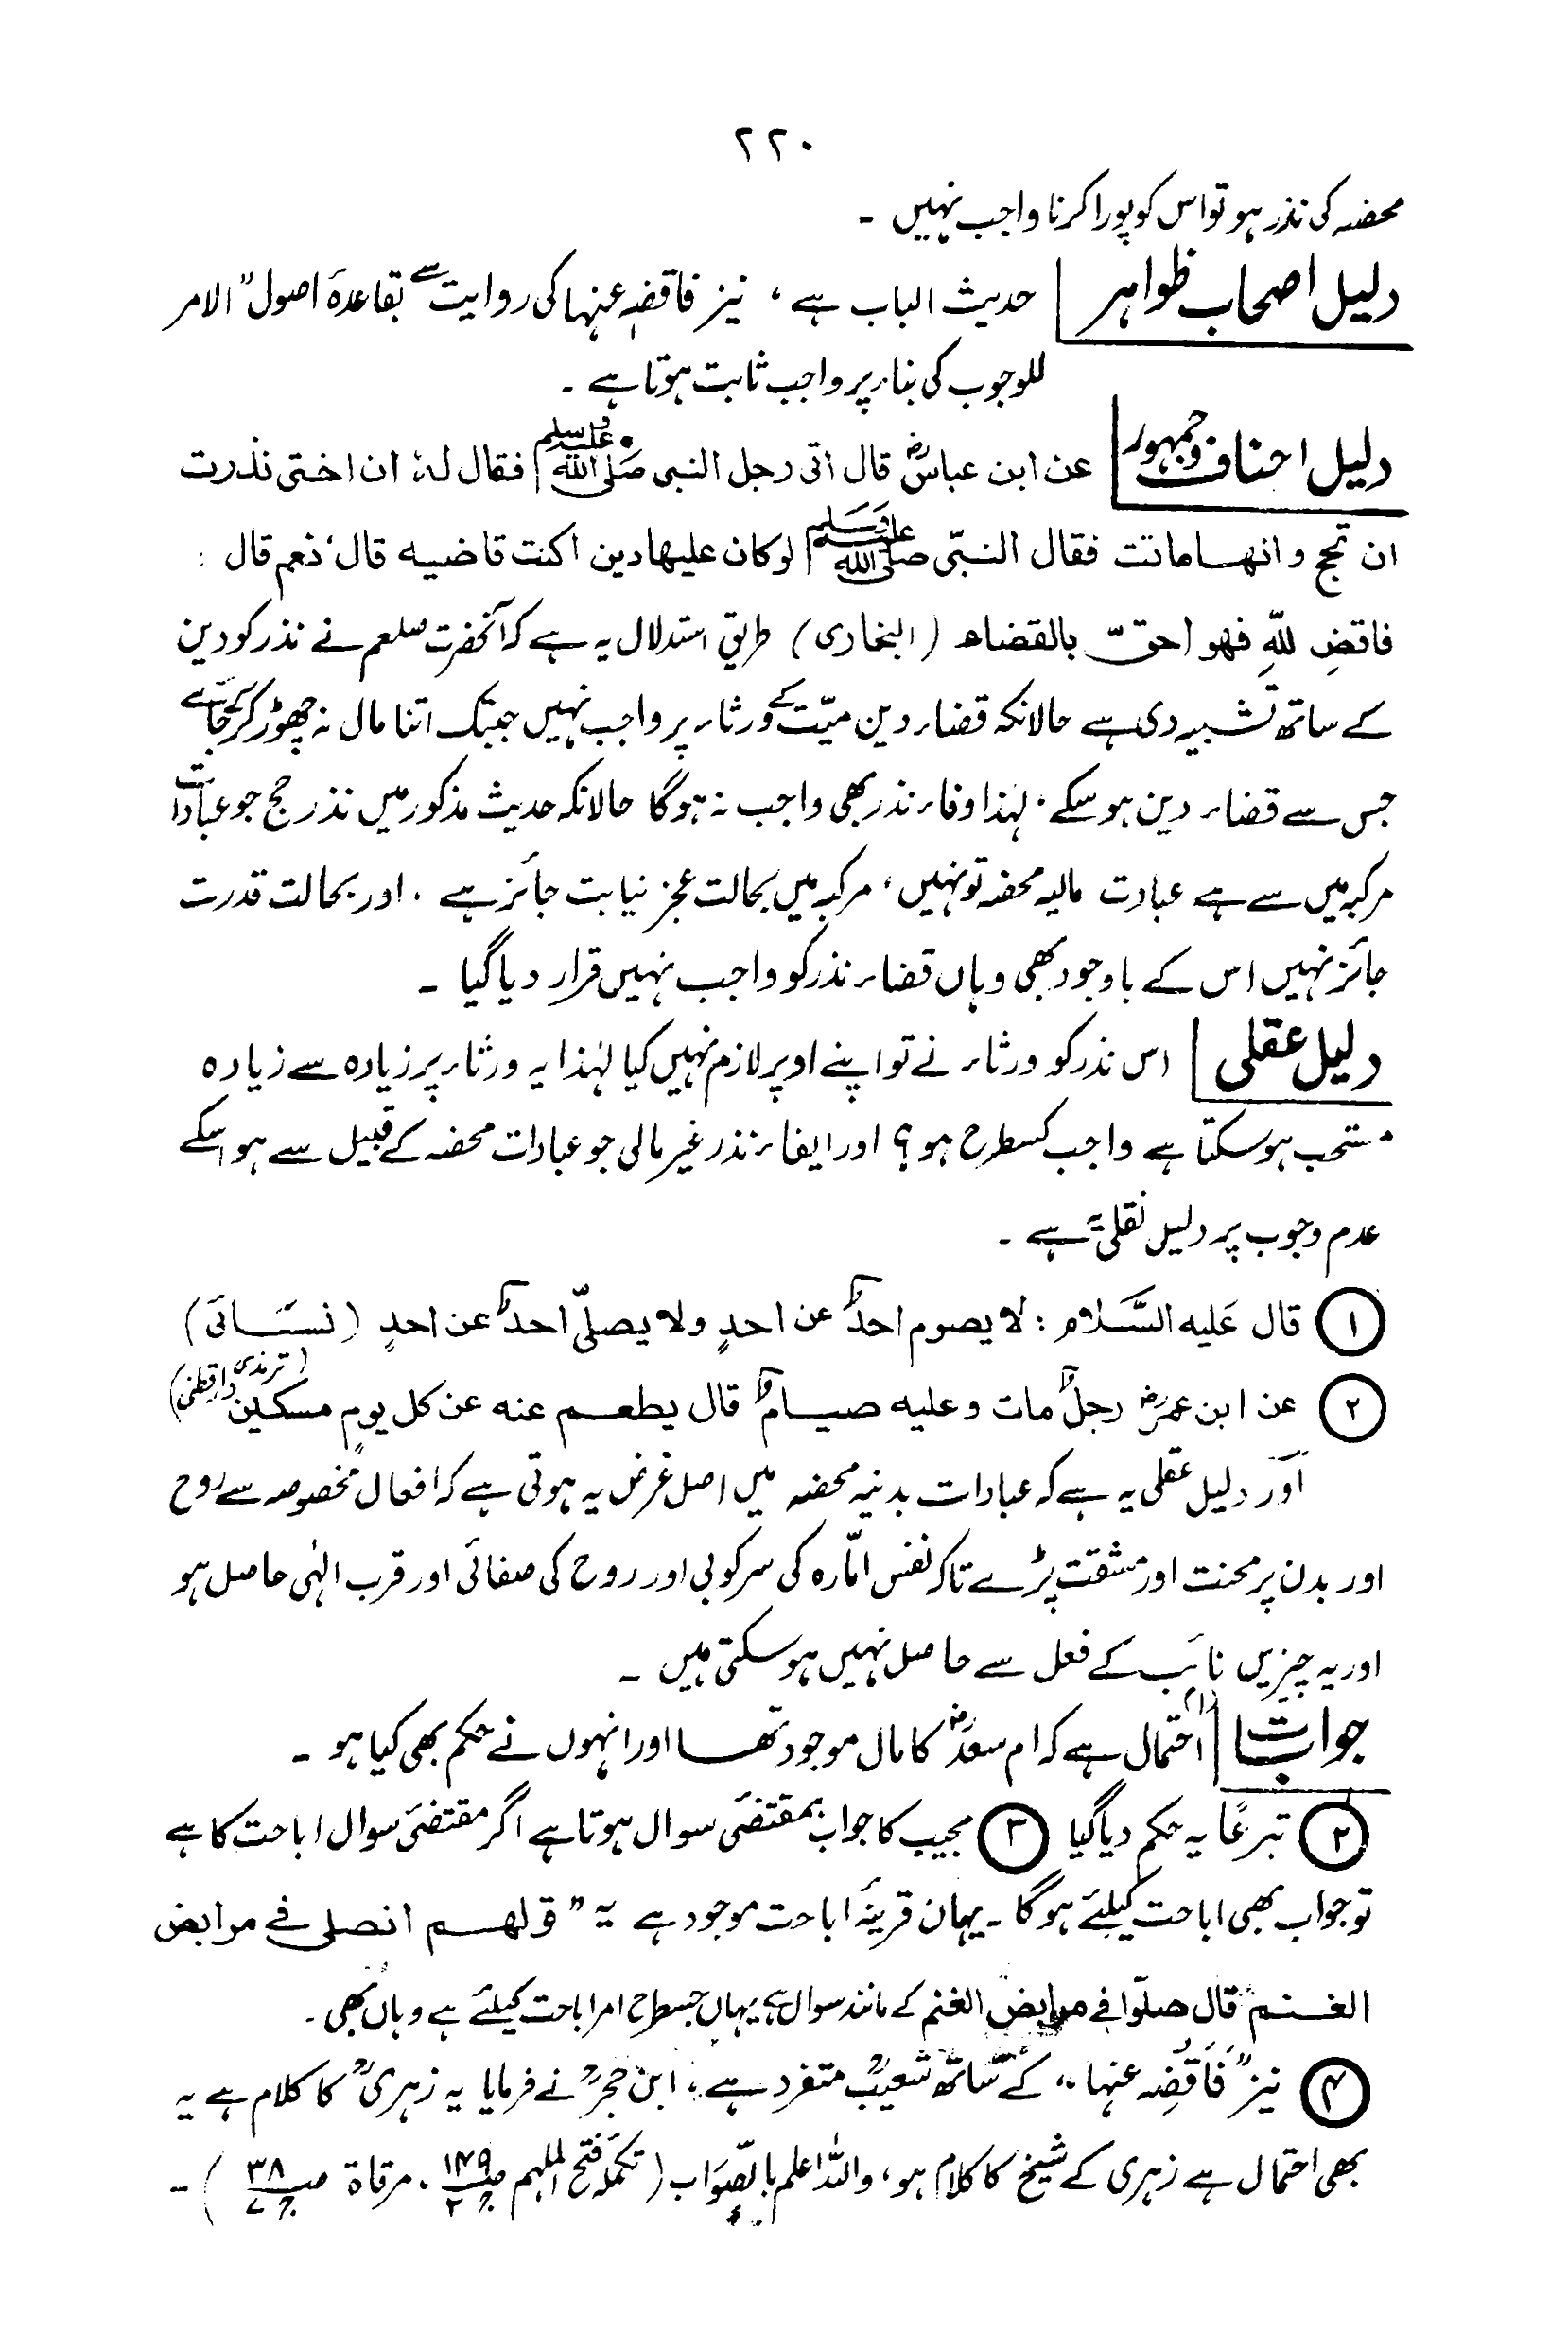 ۲۲۰
محضہ کی نذر ہو تو اس کو پورا کرنا واجب نہیں ۔
دلیل اصحاب ظواہر | حدیث الباب ہے ، نیز فاقضہ عنہا کی روایت سے بقاعدۂ اصول " الامر
للوجوب کی بناء پر واجب ثابت ہوتا ہے ۔
دلیل احناف وجمہور | عن ابن عباسؓ قال اتی رجل النبی صلی اللہ علیہ وسلم فقال لہٗ ان اختی نذرت
ان تحج وانھا ماتت فقال النبّی صلی اللہ علیہ وسلم لو کان علیھا دین اکنت قاضیہ قال نعم قال :
فاقضِ للّٰہِ فھو احقّ بالقضاء (البخاری) طریق استدلال یہ ہے کہ آنحضرت صلعم نے نذر کو دین
کے ساتھ تشبیہ دی ہے حالانکہ قضاء دین میّت کے ورثاء پر واجب نہیں جبتک اتنا مال نہ چھوڑ کر جائے
جس سے قضاء دین ہو سکے ، لہٰذا وفاء نذر بھی واجب نہ ہوگا حالانکہ حدیث مذکور میں نذر حج جو عبادات
مرکبہ میں سے ہے عبادت مالیہ محضہ تو نہیں ، مرکبہ میں بحالت عجز نیابت جائز ہے ، اور بحالت قدرت
جائز نہیں اس کے باوجود بھی وہاں قضاء نذر کو واجب نہیں قرار دیا گیا ۔
دلیل عقلی | اس نذر کو ورثاء نے تو اپنے اوپر لازم نہیں کیا لہٰذا یہ ورثاء پر زیادہ سے زیادہ
مستحب ہو سکتا ہے واجب کسطرح ہو ؟ اور ایفاء نذر غیر مالی جو عبادات محضہ کے قبیل سے ہو اسکے
عدم وجوب پر دلیل نقلی یہ ہے ۔
① قال عَلیہ السَّلام : لا یصوم احدٌ عن احدٍ ولا یصلّی احدٌ عن احدٍ (نسَائی)
② عن ابن عمرؓ رجلٌ مات وعلیہ صیامٌ قال یطعم عنہ عن کل یومٍ مسکین (ترمذی دارقطنی)
اور دلیل عقلی یہ ہے کہ عبادات بدنیہ محضہ میں اصل غرض یہ ہوتی ہے کہ افعال مخصوصہ سے روح
اور بدن پر محنت اور مشقت پڑے تاکہ نفس امّارہ کی سرکوبی اور روح کی صفائی اور قرب الٰہی حاصل ہو
اور یہ چیزیں نائب کے فعل سے حاصل نہیں ہو سکتی ہیں ۔
جوابات | (۱) احتمال ہے کہ ام سعدؓ کا مال موجود تھا اور انہوں نے حکم بھی کیا ہو ۔
② تبرعًا یہ حکم دیا گیا ③ مجیب کا جواب بمقتضیٰ سوال ہوتا ہے اگر مقتضیٰ سوال اباحت کا ہے
تو جواب بھی اباحت کیلئے ہوگا ۔ یہاں قرینۂ اباحت موجود ہے یہ " قولھم انصلی فی مرابض
الغنم قال صلّوا فی مرابض الغنم کے مانند سوال ہے یہاں جسطرح امر اباحت کیلئے ہے وہاں بھی ۔
④ نیز " فَاقضِہ عنہا ،، کے ساتھ شعیبؒ متفرد ہے ، ابن حجرؒ نے فرمایا یہ زہریؒ کا کلام ہے یہ
بھی احتمال ہے زہری کے شیخ کا کلام ہو ، واللہ اعلم بالصّوَاب (تکملہ فتح الملہم ص۱۴۹ ج۲ ، مرقاۃ ص۳۸ ج۷) ۔